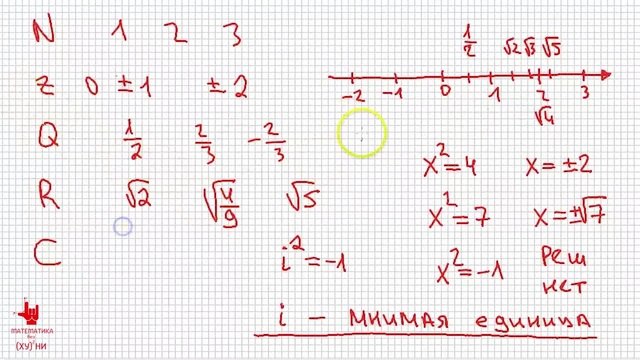 N 1 2 3
Z 0 ±1 ±2
Q 1/2 2/3 -2/3
R √2 √4/9 √5
C
1/2 √2 √3 √5
-2 -1 0 1 2 3
√4
x²=4 x=±2
x²=7 x=±√7
i²=-1 x²=-1 реш
нет
i - мнимая единица
МАТЕМАТИКА
без
(ХУ)'НИ